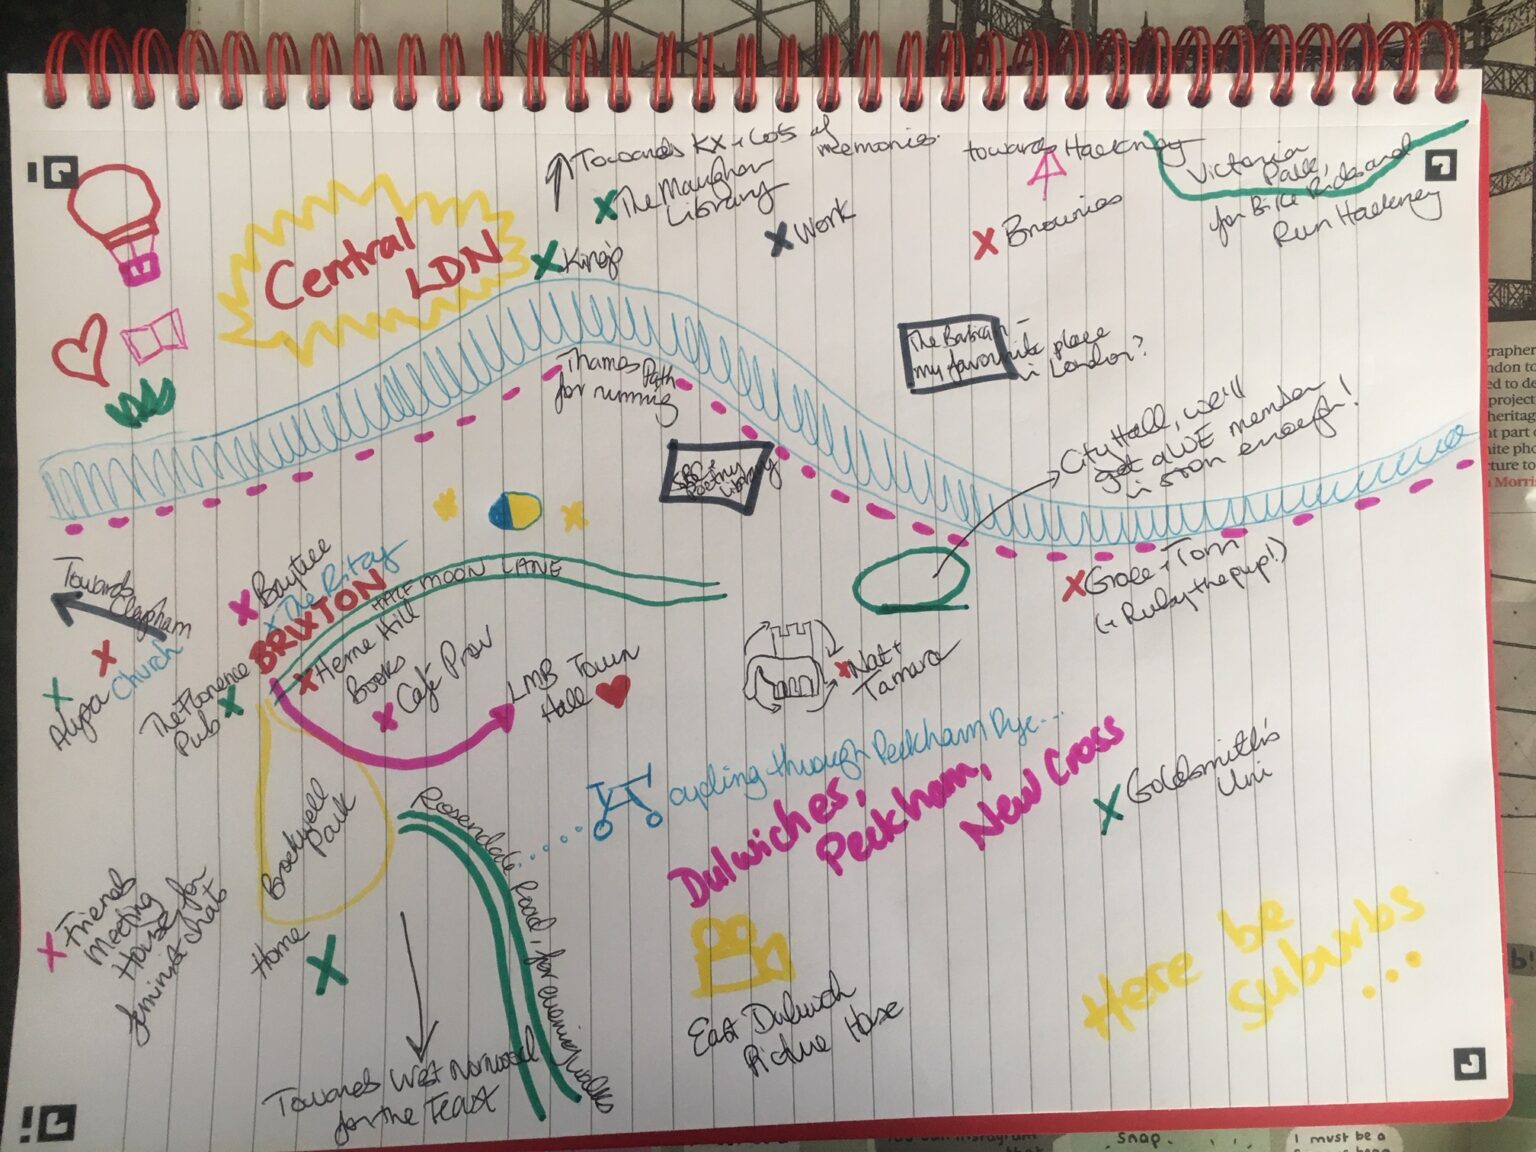 Towards KX + Lots of memories.
The Maughan
Library
King's
Work
towards Hackney
Brownies
Victoria
Park,
for Bike Rides and
Run Hackney
Central
LDN
The Barbican -
my favourite place
in London?
Thames Path
for running
Poetry
Library
City Hall, we'll
get a WE member
in soon enough!
Grace + Tom
(+ Ruby the pup!)
Towards
Clapham
Church
Alyssa
Baytree
The Ritzy
BRIXTON
HALF MOON LANE
The Florence
Pub
Herne Hill
Books
Café Prov
LMB Town
Hall
Nat +
Tamara
cycling through Peckham Rye...
Dulwiches,
Peckham,
New Cross
Goldsmith's
Uni
Brockwell
Park
Rosendale Road, for evening walks
Friends
Meeting
House for
feminist chats
Home
Towards West Norwood
for the Feast
East Dulwich
Picture House
Here be
suburbs
...
grapher
ndon to
ed to de
project
heritag
nt part o
nite pho
cture to
Morris
snap.
I must be a